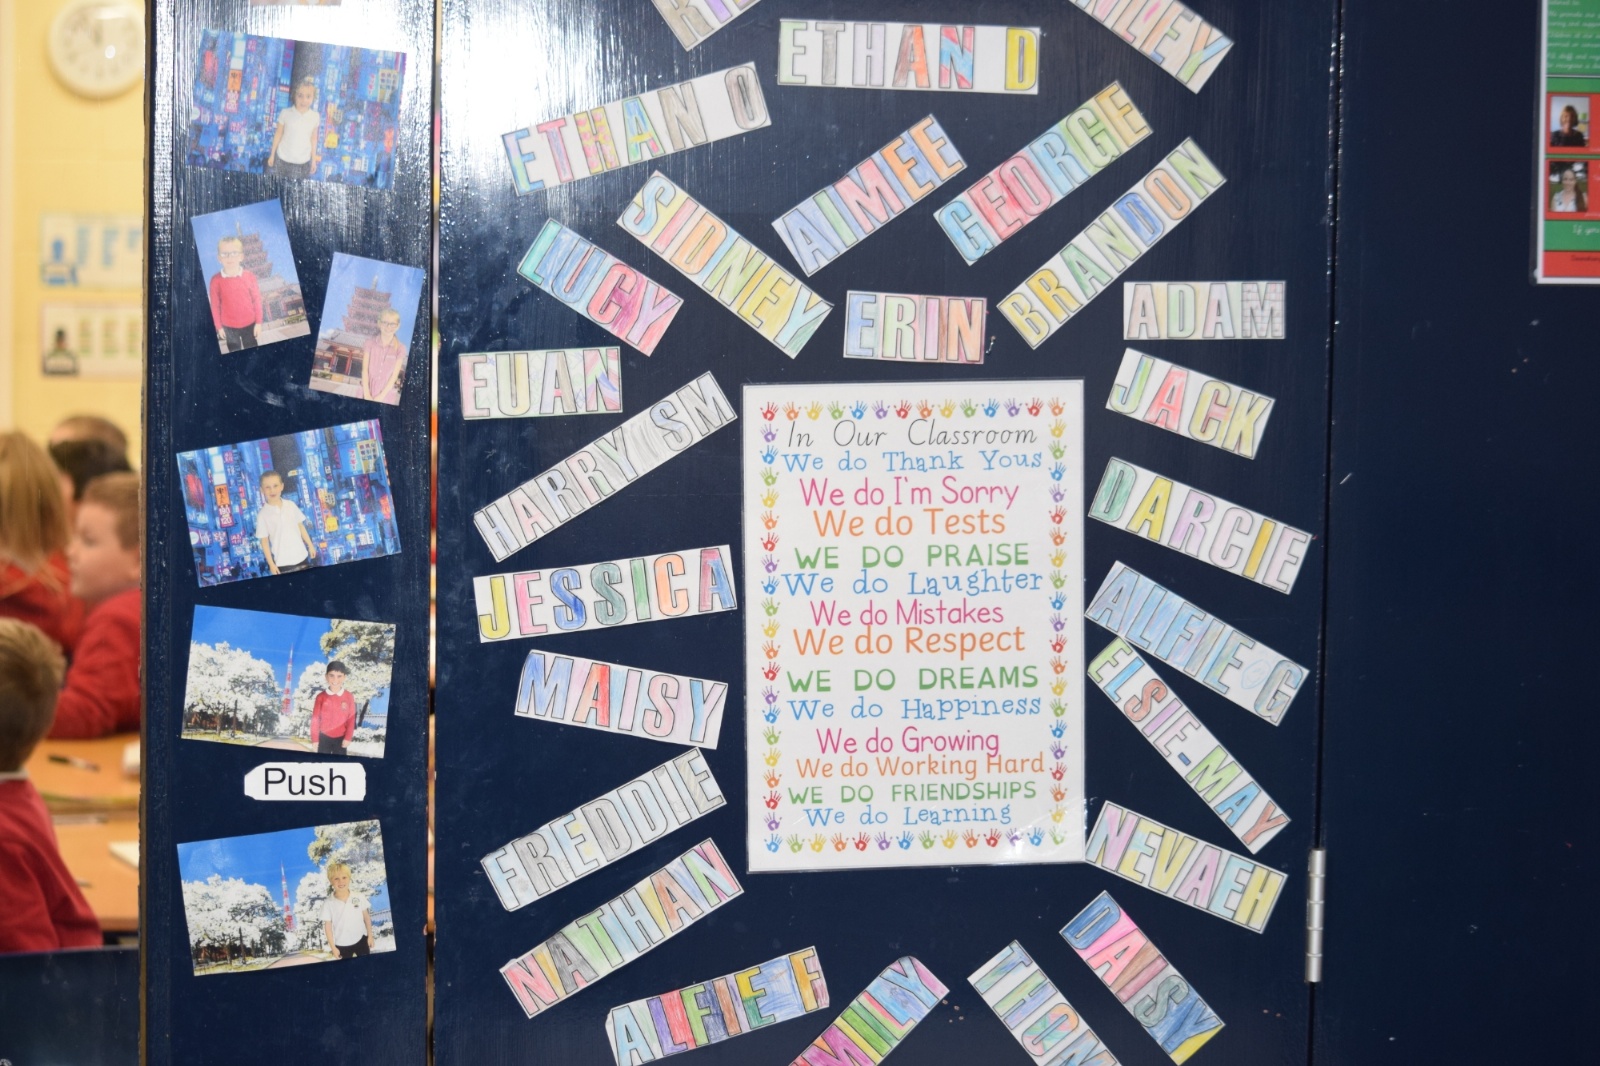 ETHAN D
ETHAN O
AIMEE
GEORGIE
SIDNEY
BRANDON
LUCY
ERIN
ADAM
EUAN
JACK
HARRY SM
DARCIE
JESSICA
ALFIE G
MAISY
ELSIE-MAY
FREDDIE
NEVAEH
NATHAN
DAISY
ALFIE F
In Our Classroom
We do Thank Yous
We do I'm Sorry
We do Tests
WE DO PRAISE
We do Laughter
We do Mistakes
We do Respect
WE DO DREAMS
We do Happiness
We do Growing
We do Working Hard
WE DO FRIENDSHIPS
We do Learning
Push